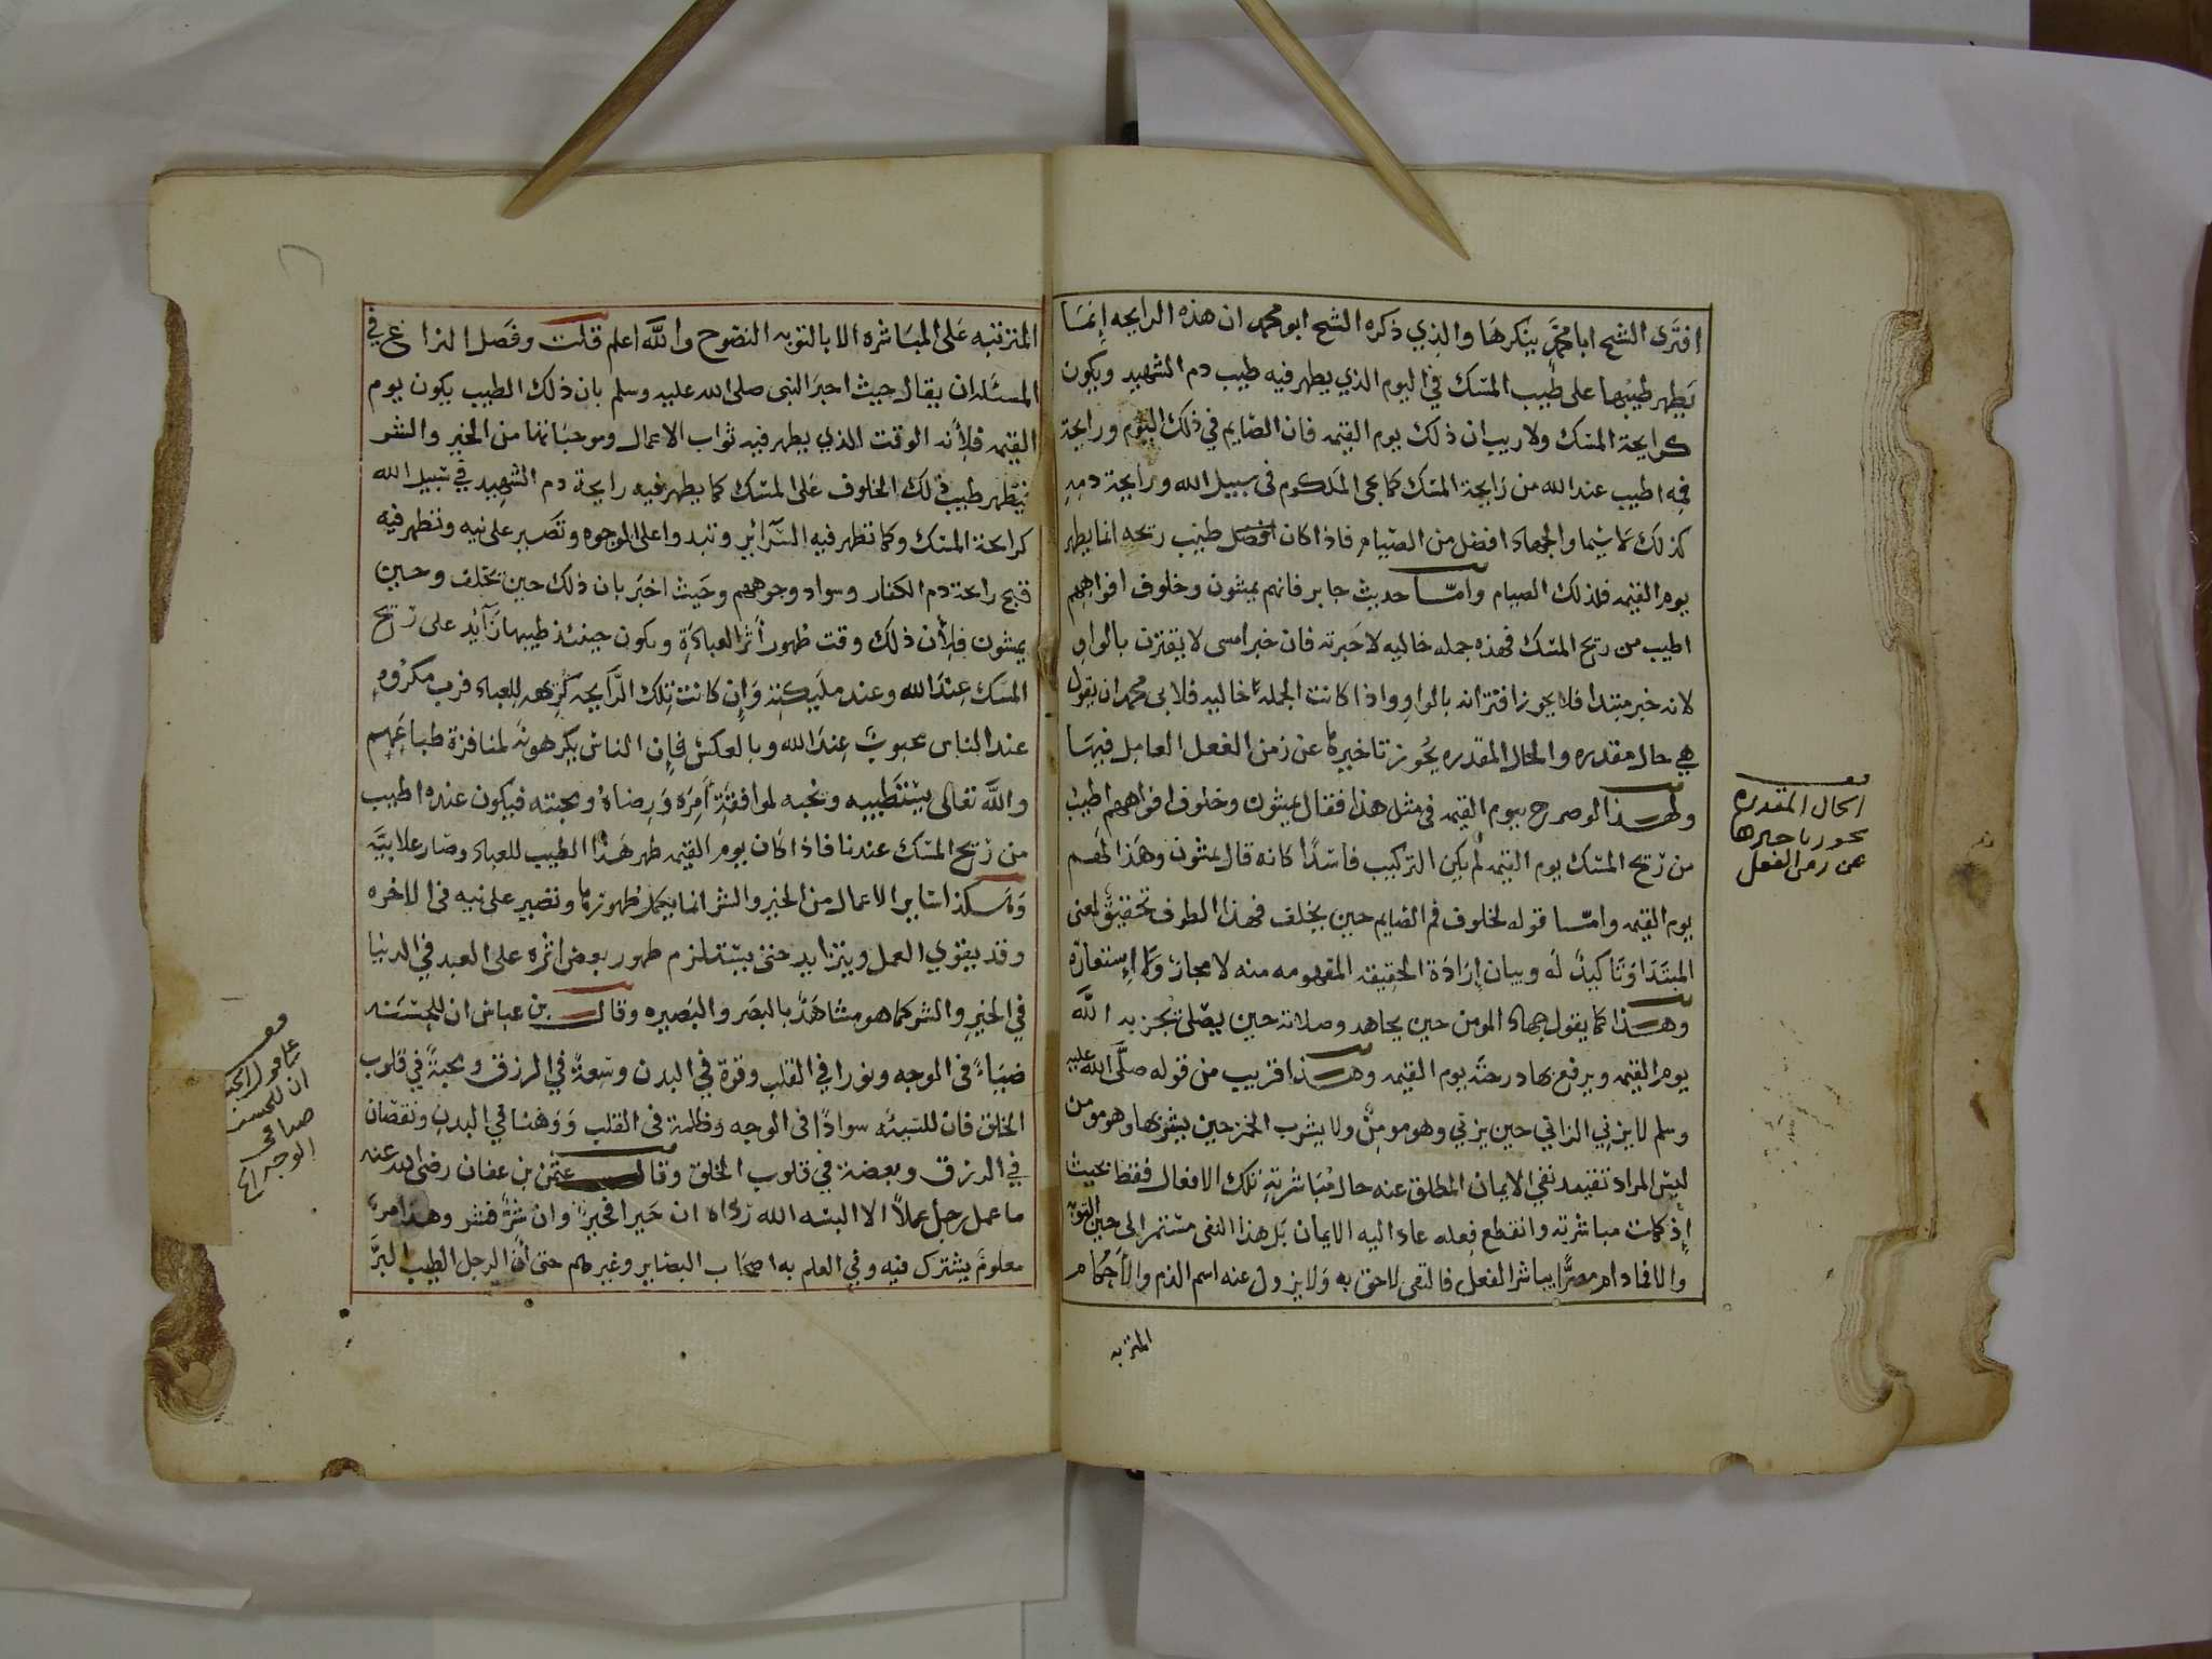 افترى الشيخ ابا محمد ينكرها والذي ذكره الشيخ ابو محمد ان هذه الرايحه إنما
يظهر طيبها على طيب المسك في اليوم الذي يظهر فيه طيب دم الشهيد ويكون
كرايحة المسك ولا ريب ان ذلك يوم القيمه فان الصايم في ذلك اليوم ورايحة
فمه اطيب عند الله من رايحة المسك كما يجى المكلوم فى سبيل الله ورايحة دمه
كذلك لا سيما والجهاد افضل من الصيام فاذا كان افضل طيب ريحه انما يظهر
يوم القيمه فلذلك الصيام وامّا حديث جابر فانهم يمسون وخلوف افواههم
اطيب من ريح المسك فهذه جمله حاليه لا خبريه فان خبر امسى لا يقترن بالواو
لانه خبر مبتدا فلا يجوز اقترانه بالواو واذا كانت الجملة حاليه فلابى محمد ان يقول
هي حال مقدره والحال المقدره يجوز تاخيرها عن زمن الفعل العامل فيها
ولهذا لو صرح بيوم القيمه فى مثل هذا فقال يمسون وخلوف افواههم اطيب
من ريح المسك يوم القيمه لم يكن التركيب فاسدًا كانه قال يمسون وهذا لهم
يوم القيمه وامّا قوله لخلوف فم الصايم حين يخلف فهذا الظرف تحقيق لمعنى
المبتدا وتأكيد له وبيان إرادة الحقيقه المفهومه منه لا مجازه ولا إستعارة
وهذا كما يقول جهاد المومن حين يجاهد وصلاته حين يصلى يجزيه الله
يوم القيمه ويرفع بها درجته يوم القيمه وهذا قريب من قوله صلى الله عليه
وسلم لا يزني الزاني حين يزني وهو مومن ولا يشرب الخمر حين يشربها وهو مومن
ليس المراد تقييد نفي الايمان المطلق عنه حال مباشرته تلك الافعال فقط بحيث
إذ كملت مباشرته وانقطع فعله عاد اليه الايمان بل هذا النفى مستمر الى حين التوبه
والا فما دام مصرًّا يباشر الفعل فالنفى لاحق به ولا يزول عنه اسم الذم والأحكام
المترتبه
الحال المقدره
يجوز تاخيرها
عن زمن الفعل
المترتبه على المباشره الا بالتوبه النصوح والله اعلم قلت وفصل النزاع في
المسئله ان يقال حيث اخبر النبى صلى الله عليه وسلم بان ذلك الطيب يكون يوم
القيمه فلأنه الوقت الذي يظهر فيه ثواب الاعمال وموجباتها من الخير والشر
فيظهر طيب ذلك الخلوف على المسك كما يظهر فيه رايحة دم الشهيد في سبيل الله
كرايحة المسك وكما تظهر فيه السرآئر وتبدوا على الوجوه وتصير علانيه وتظهر فيه
قبح رايحة دم الكفار وسواد وجوههم وحيث اخبر بان ذلك حين يخلف وحين
يمسون فلأن ذلك وقت ظهور أثر العبادة ويكون حينئذ طيبها زآيد على ريح
المسك عند الله وعند مليكته وإن كانت تلك الرآيحه كريهه للعباد فرب مكروه
عند الناس محبوب عند الله وبالعكس فإن الناس يكرهونه لمنافرة طباعهم
والله تعالى يستطيبه ويحبه لموافقة أمره ورضاه ومحبته فيكون عنده اطيب
من ريح المسك عندنا فاذا كان يوم القيمه ظهر هذا الطيب للعباد وصار علانيّه
وهكذا ساير الاعمال من الخير والشر انما يكمل ظهورها وتصير علانيه فى الاخره
وقد يقوي العمل ويتزايد حتى يستلزم ظهور بعض اثره على العبد في الدنيا
في الخير والشر كما هو مشاهد بالبصر والبصيره وقال بن عباس ان للحسنه
ضياءً فى الوجه ونورا في القلب وقوة في البدن وسعة في الرزق ومحبةً في قلوب
الخلق فان للسيئه سوادًا فى الوجه وظلمة فى القلب ووهنا في البدن ونقصان
في الرزق وبغضة في قلوب الخلق وقال عثمن بن عفان رضى الله عنه
ما عمل رجل عملاً الا البسه الله رداه ان خيرا فخير وان شرًّ فشر وهذا امر
معلوم يشترك فيه وفي العلم به اصحاب البصاير وغيرهم حتى أن الرجل الطيب البرّ
ان للحسنه
ضيا فى
الوجه الخ